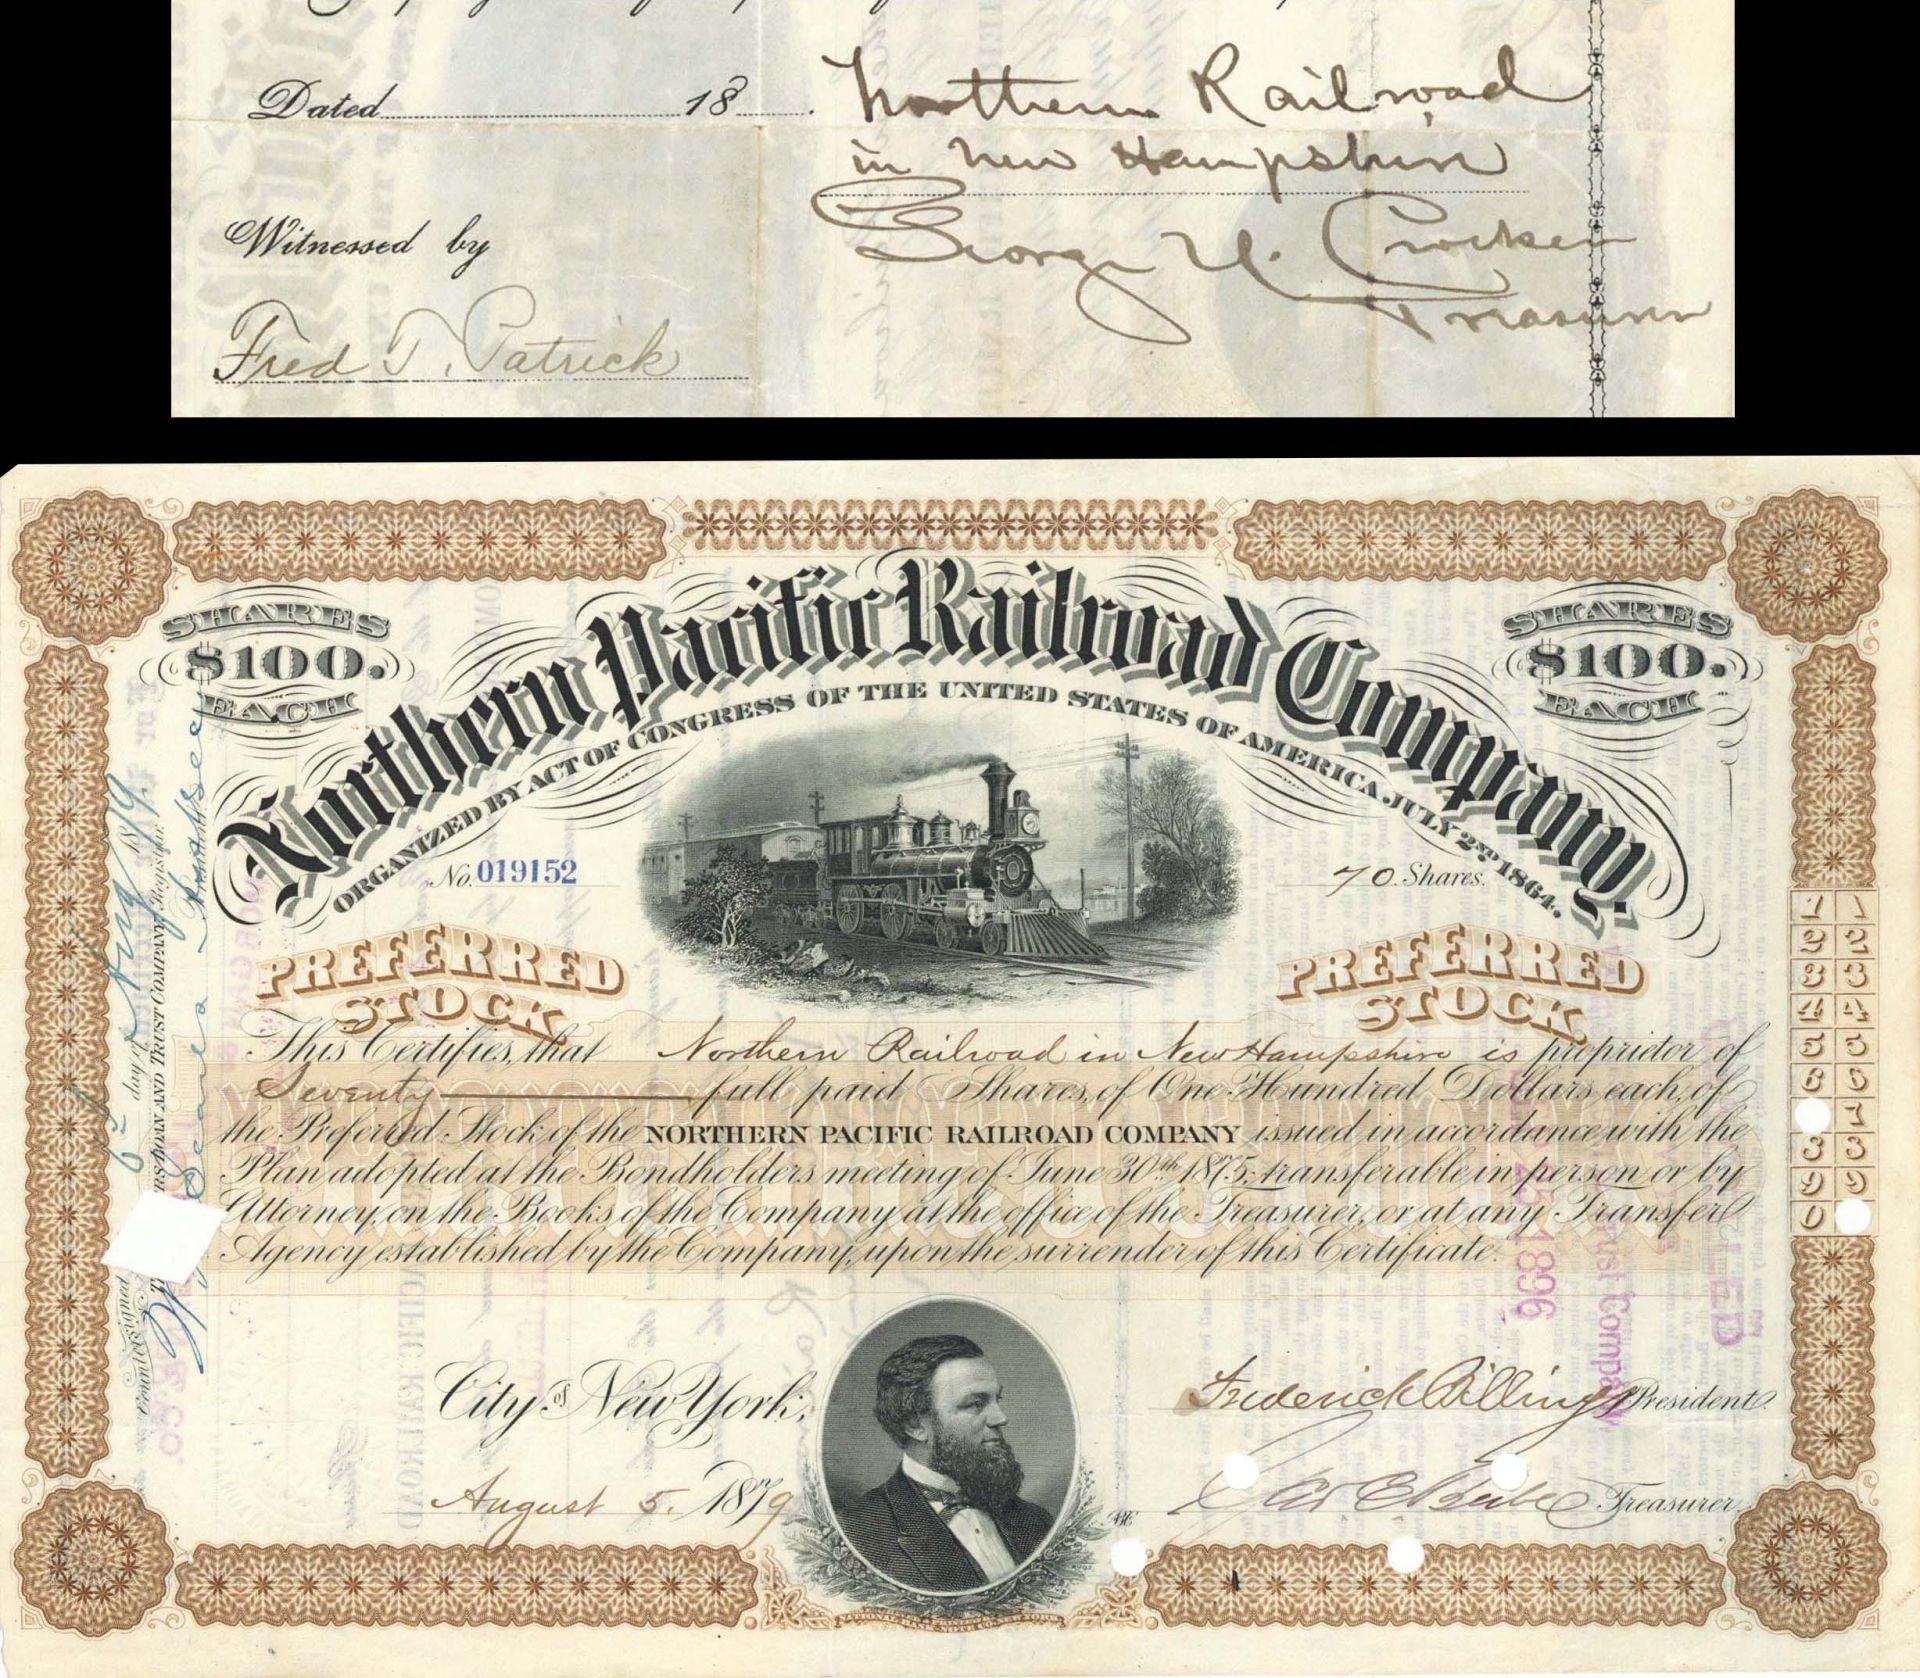 Dated 18 .
Northern Railroad
in New Hampshire
Witnessed by
George U. Crocker
Treasurer
Fred T. Patrick
SHARES
$100.
EACH
SHARES
$100.
EACH
Northern Pacific Railroad Company.
ORGANIZED BY ACT OF CONGRESS OF THE UNITED STATES OF AMERICA, JULY 2ND 1864.
No. 019152
70. Shares.
PREFERRED
STOCK
PREFERRED
STOCK
This Certifies, that Northern Railroad in New Hampshire is proprietor of
Seventy full paid Shares, of One Hundred Dollars each, of
the Preferred Stock of the NORTHERN PACIFIC RAILROAD COMPANY issued in accordance with the
Plan adopted at the Bondholders meeting of June 30th 1875; transferable in person or by
Attorney, on the Books of the Company at the office of the Treasurer, or at any Transfer
Agency established by the Company, upon the surrender of this Certificate.
City of New York,
August 5, 1879
Frederick Billings President
Treasurer
Countersigned
6th day of Aug 1879
LOAN AND TRUST COMPANY, Registrar.
1 1
2 2
3 3
4 4
5 5
6 6
1
8 8
9 9
0
1896
Trust Company